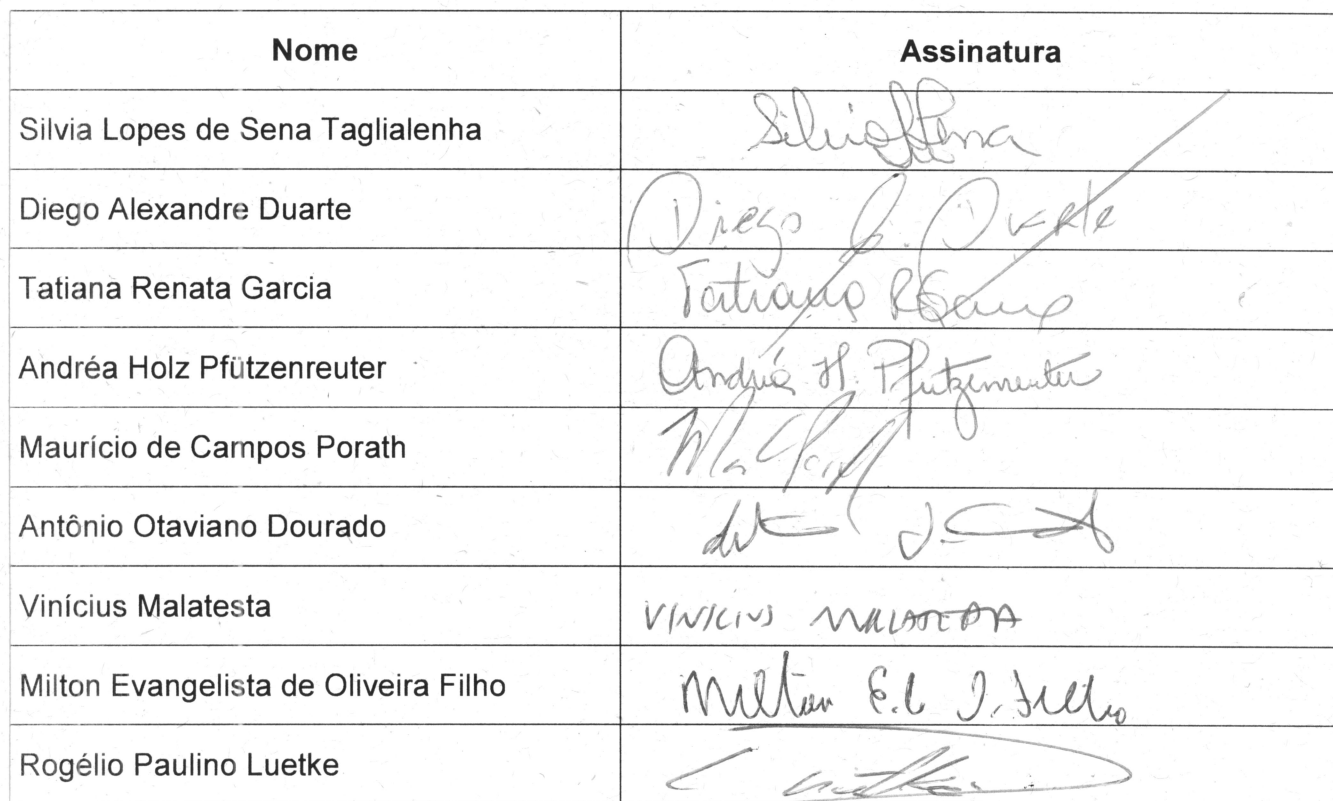 Nome Assinatura
Silvia Lopes de Sena Taglialenha Silvia Sena
Diego Alexandre Duarte Diego A. Duarte
Tatiana Renata Garcia Tatiana R Garcia
Andréa Holz Pfützenreuter Andréa H. Pfutzenreuter
Maurício de Campos Porath
Antônio Otaviano Dourado
Vinícius Malatesta VINICIUS MALATESTA
Milton Evangelista de Oliveira Filho Milton E. O. Filho
Rogélio Paulino Luetke